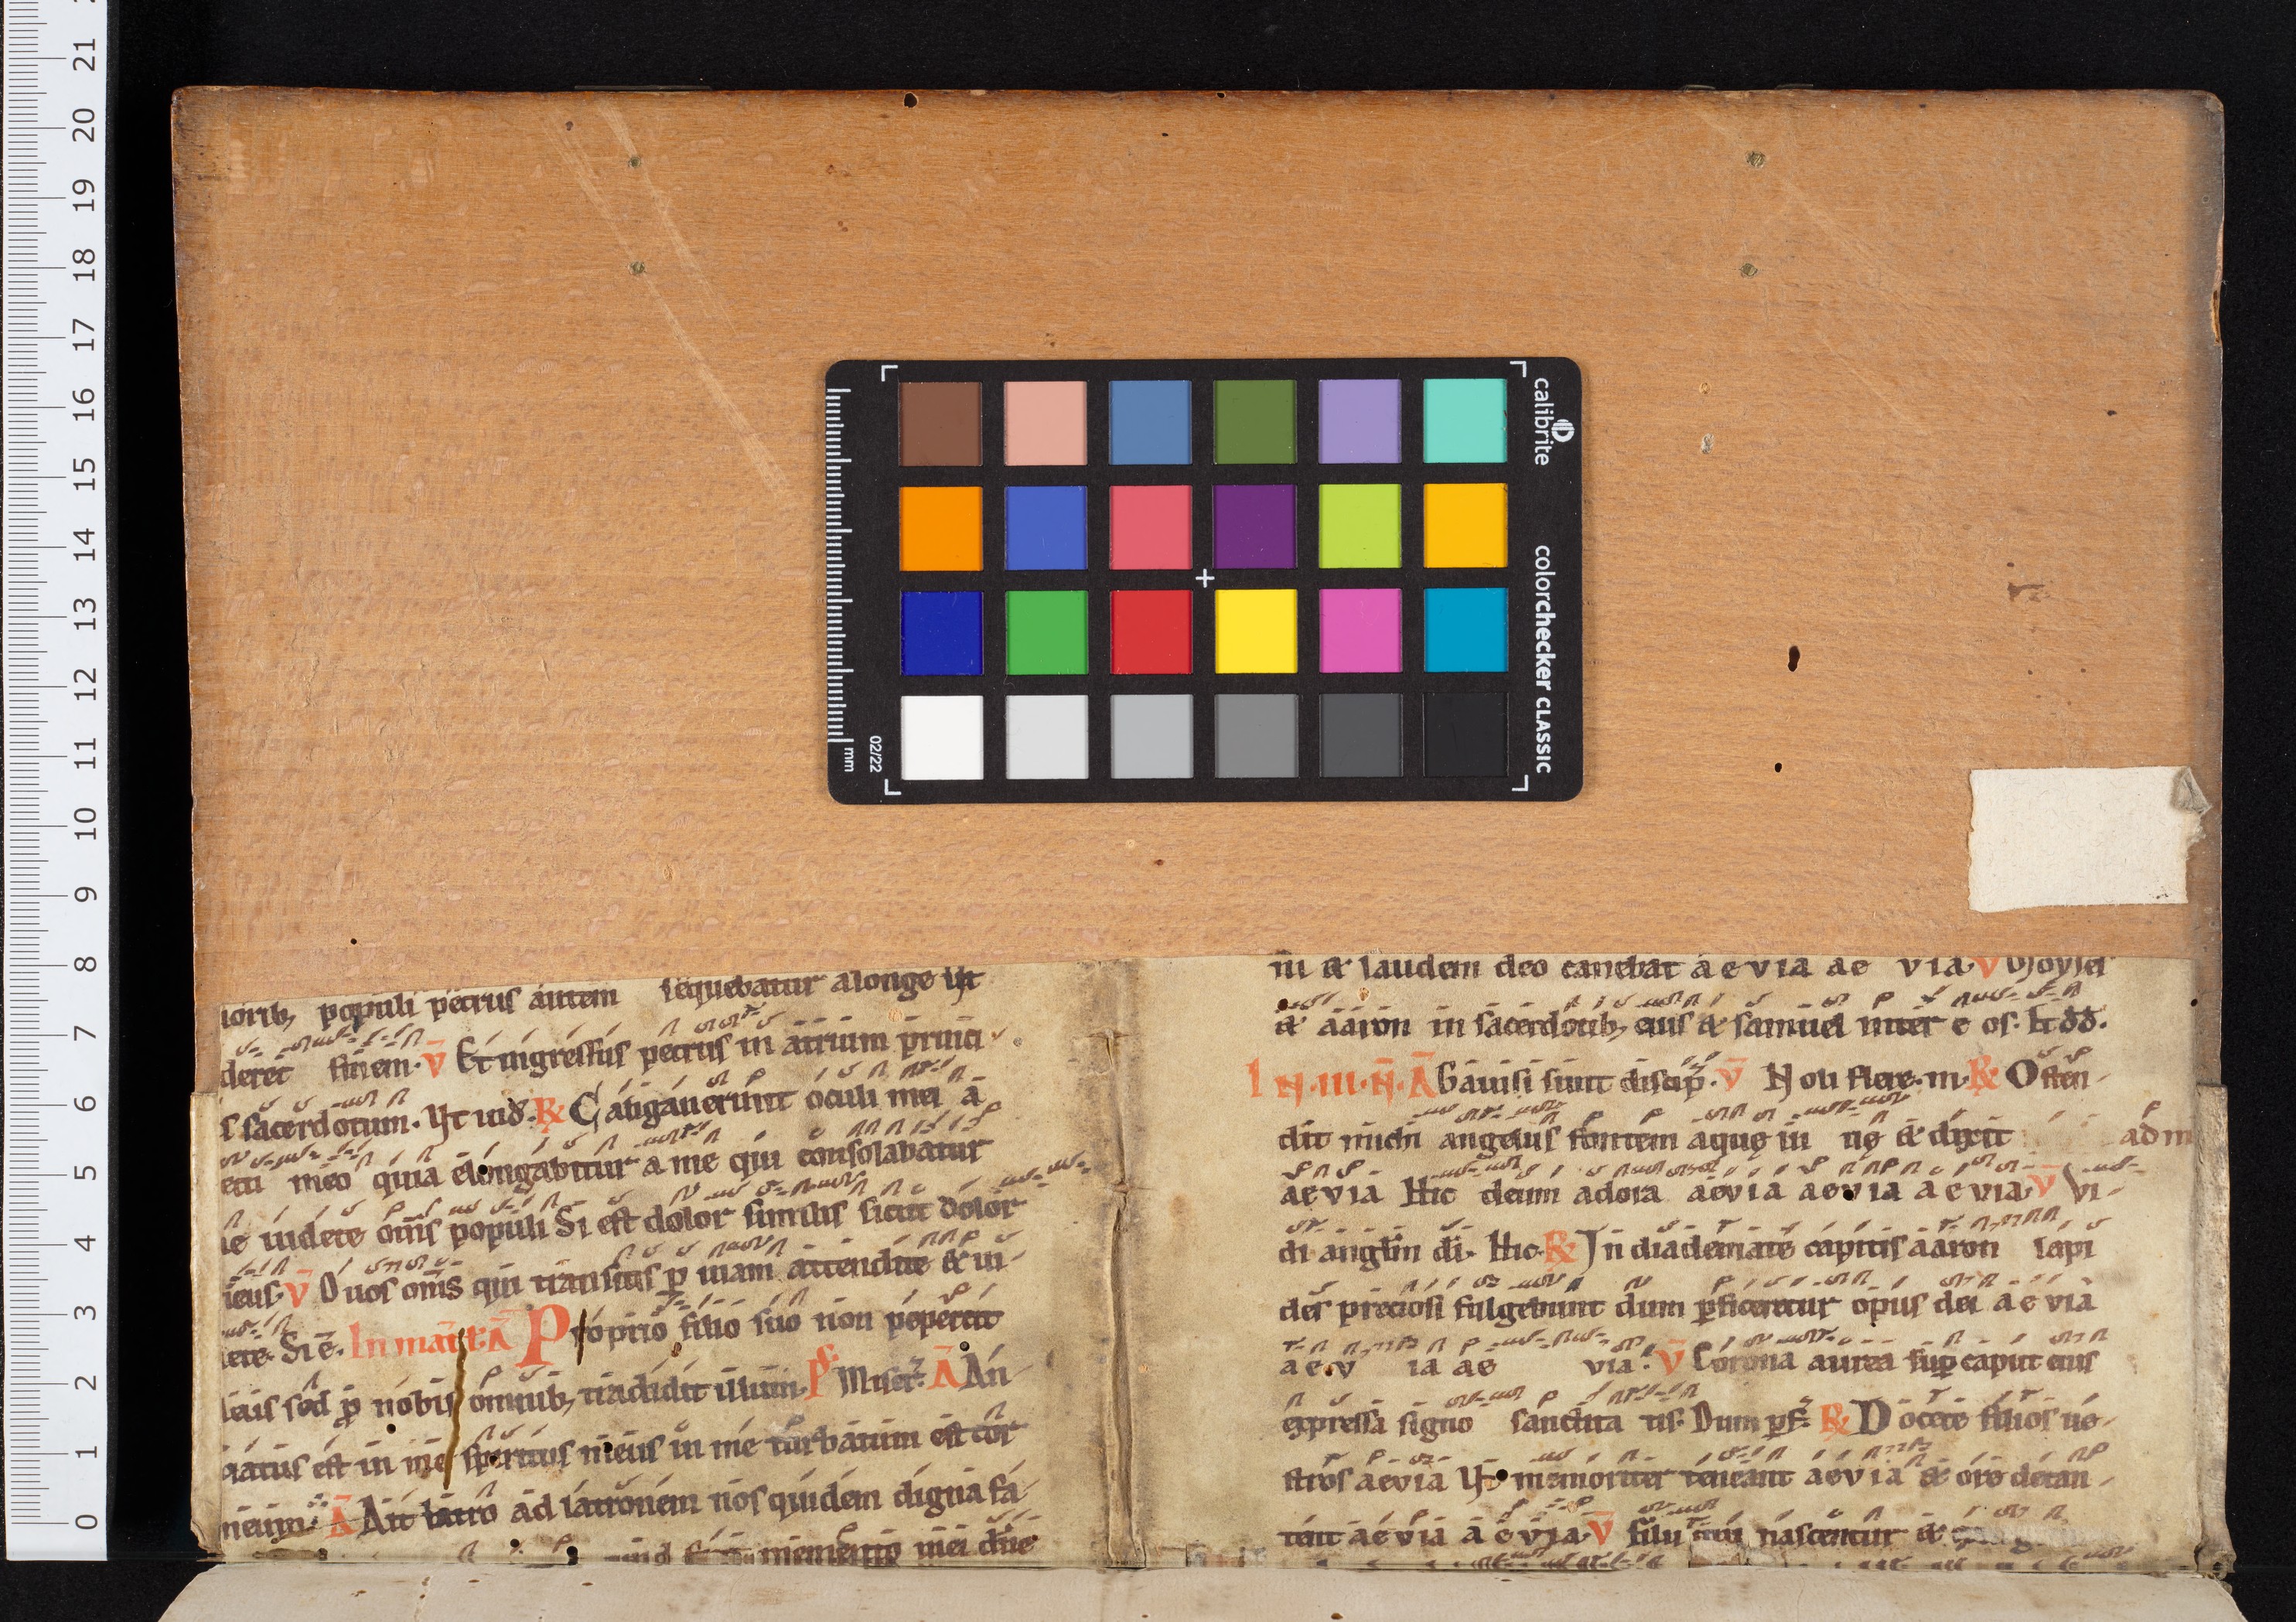 21
20
19
18
17
16
15
14
13
12
11
10
9
8
7
6
5
4
3
2
1
0
calibrite
colorchecker CLASSIC
02/22
mm
iorib; populi petrus autem sequebatur alonge ut
deret finem. V̄ Et ingressus petrus in atrium princi
s sacerdotum. Ut uid. R̷ Caligauerunt oculi mei a
etu meo quia elongabitur a me qui consolabatur
ie uidete om̄s populi Si est dolor similis sicut dolor
ieus. V̄ O uos om̄s qui transitis ꝑ uiam attendite & ui
ete. Si ē. In mat̄ t. Ā Proprio filio suo non pepercit
leis sed ꝓ nobis omnib; tradidit illum. Ps. Miser. Ā An
xiatus est in me spiritus meus in me turbatum est cor
meum. Ā Ait latro ad latronem nos quidem digna fa
memento mei dn̄e
ni & laudem deo canebat aevia ae via. V̄ Moyses
& aaron in sacerdotib; eius & samuel inter e os. Et dd.
IN. III. N̄. Ā Gauisi sunt discip̄. V̄ Noli flere. m. R̷ Osten
dit michi angelus fontem aquę ui uę & dixit ad m
aevia Hic deum adora aevia aevia aevia. V̄ Vi
di anglm̄ di. Hic. R̷ In diademate capitis aaron lapi
des preciosi fulgebunt dum ꝑficeretur opus dei aevia
aev ia ae via. V̄ Corona aurea suꝑ caput eius
expressa signo sanctita tis. Dum ꝑf. R̷ Docete filios ue
stros aevia Ut memoriter teneant aevia & ore decan
tent aevia aevia. V̄ filii qui nascentur &